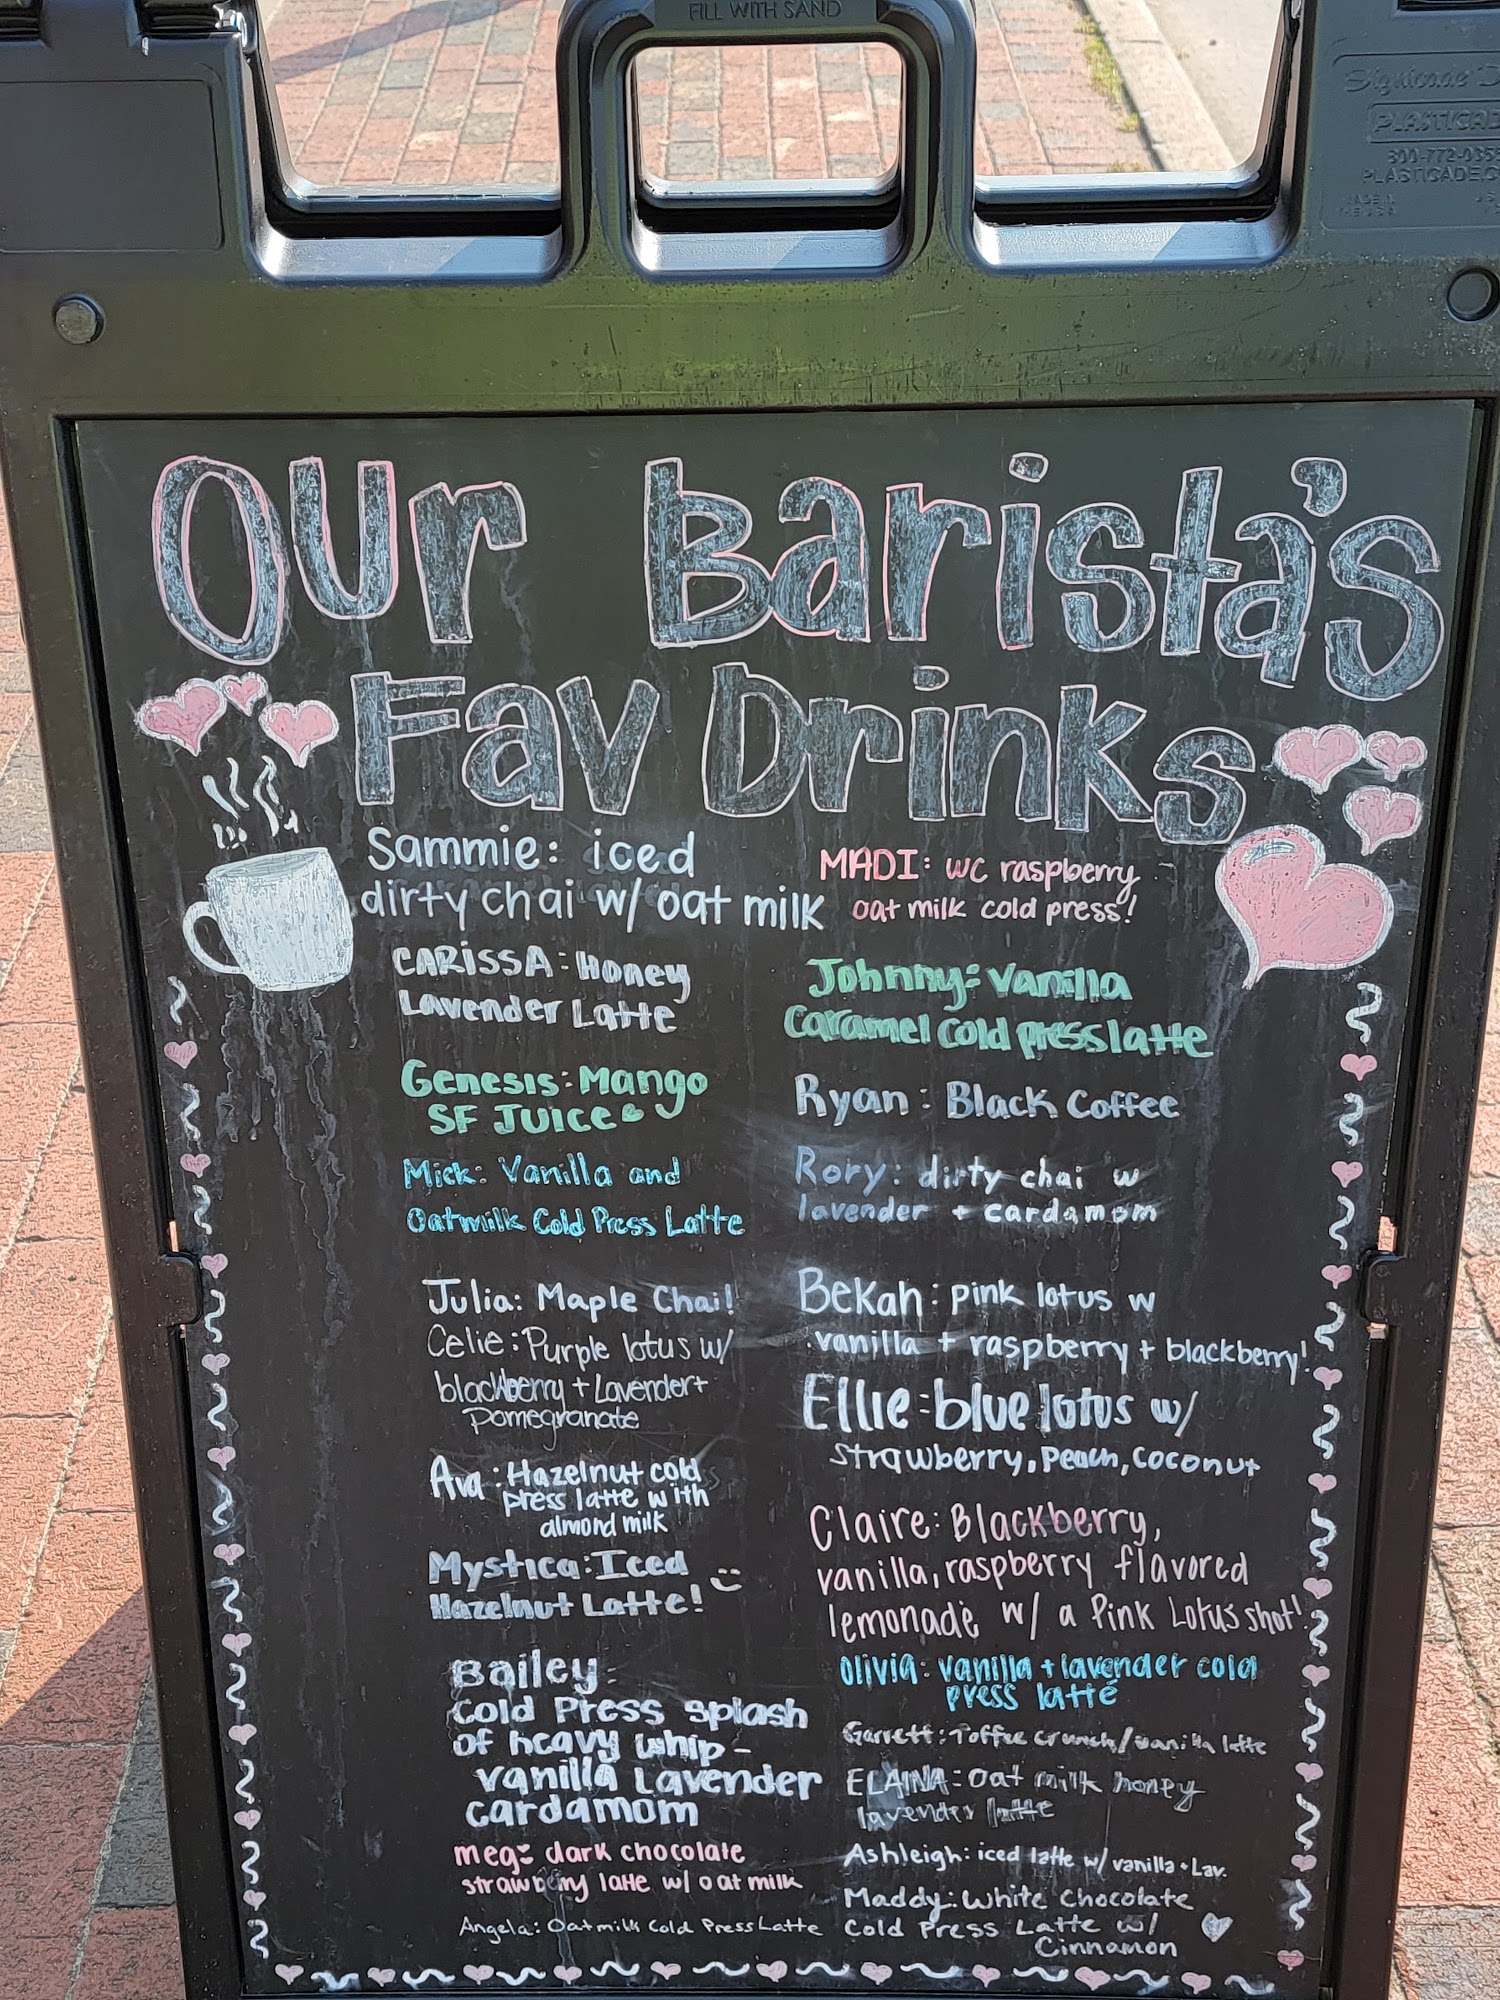 FILL WITH SAND
Signicade
PLASTICADE
800-772-0355
PLASTICADE.C
MADE IN
THE U.S.A.
Our Barista's
Fav Drinks
Sammie: iced
dirty chai w/ oat milk
CARiSSA: Honey
Lavender Latte
Genesis: Mango
SF JUICE
Mick: Vanilla and
Oatmilk Cold Press Latte
Julia: Maple Chai!
Celie: Purple lotus w/
blackberry + Lavender +
pomegranate
Ava: Hazelnut cold
press latte with
almond milk
Mystica: Iced
Hazelnut Latte!
Bailey:
Cold Press splash
of heavy whip -
vanilla Lavender
cardamom
meg: dark chocolate
strawberry latte w/ oat milk
Angela: Oatmilk Cold Press Latte
MADI: WC raspberry
oat milk cold press!
Johnny: Vanilla
Caramel Cold press latte
Ryan: Black Coffee
Rory: dirty chai w
lavender + cardamom
Bekah: pink lotus w
vanilla + raspberry + blackberry!
Ellie: blue lotus w/
strawberry, peach, coconut
Claire: Blackberry,
vanilla, raspberry flavored
lemonade w/ a Pink Lotus shot!
Olivia: vanilla + lavender cold
press latte
Garrett: Toffee crunch/vanilla latte
ELAINA: Oat milk honey
lavender latte
Ashleigh: iced latte w/ vanilla + Lav.
Maddy: White Chocolate
Cold Press Latte w/
Cinnamon